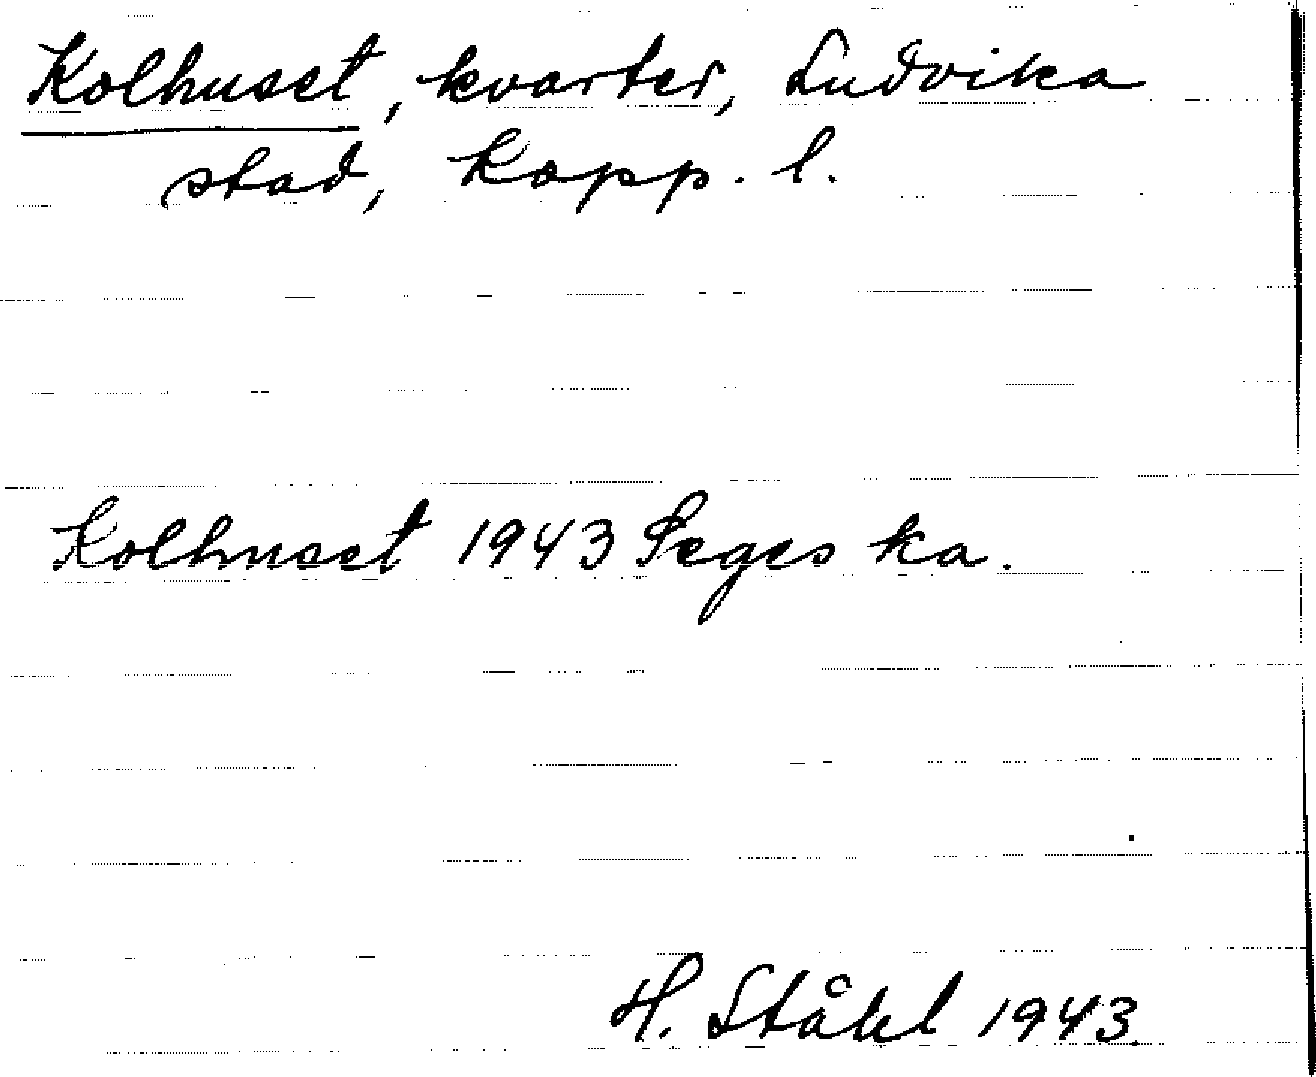 Kolhuset, kvarter, Ludvika
stad, Kopp. l.
Kolhuset 1943 Seges ka.
H. Ståhl 1943.